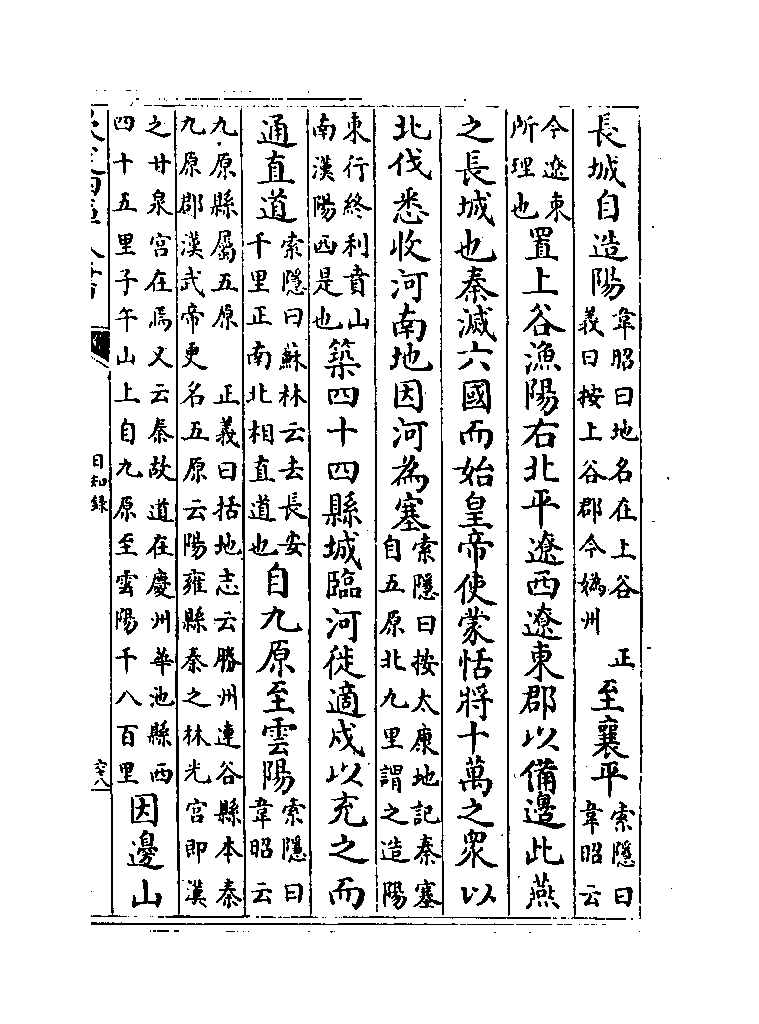 長城自造陽韋昭曰地名在上谷　正義曰按上谷郡今媯州至襄平索隱曰韋昭云
今遼東所理也置上谷漁陽右北平遼西遼東郡以備邊此燕
之長城也秦滅六國而始皇帝使蒙恬將十萬之衆以
北伐悉收河南地因河為塞索隱曰按太康地記秦塞自五原北九里謂之造陽
東行終利賁山南漢陽西是也築四十四縣城臨河徙適戍以充之而
通直道索隱曰蘇林云去長安千里正南北相直道也自九原至雲陽索隱曰韋昭云
九原縣屬五原　正義曰括地志云勝州連谷縣本秦九原郡漢武帝更名五原云陽雍縣秦之林光宫即漢
之甘泉宫在焉又云秦故道在慶州華池縣西四十五里子午山上自九原至雲陽千八百里因邊山
日知錄